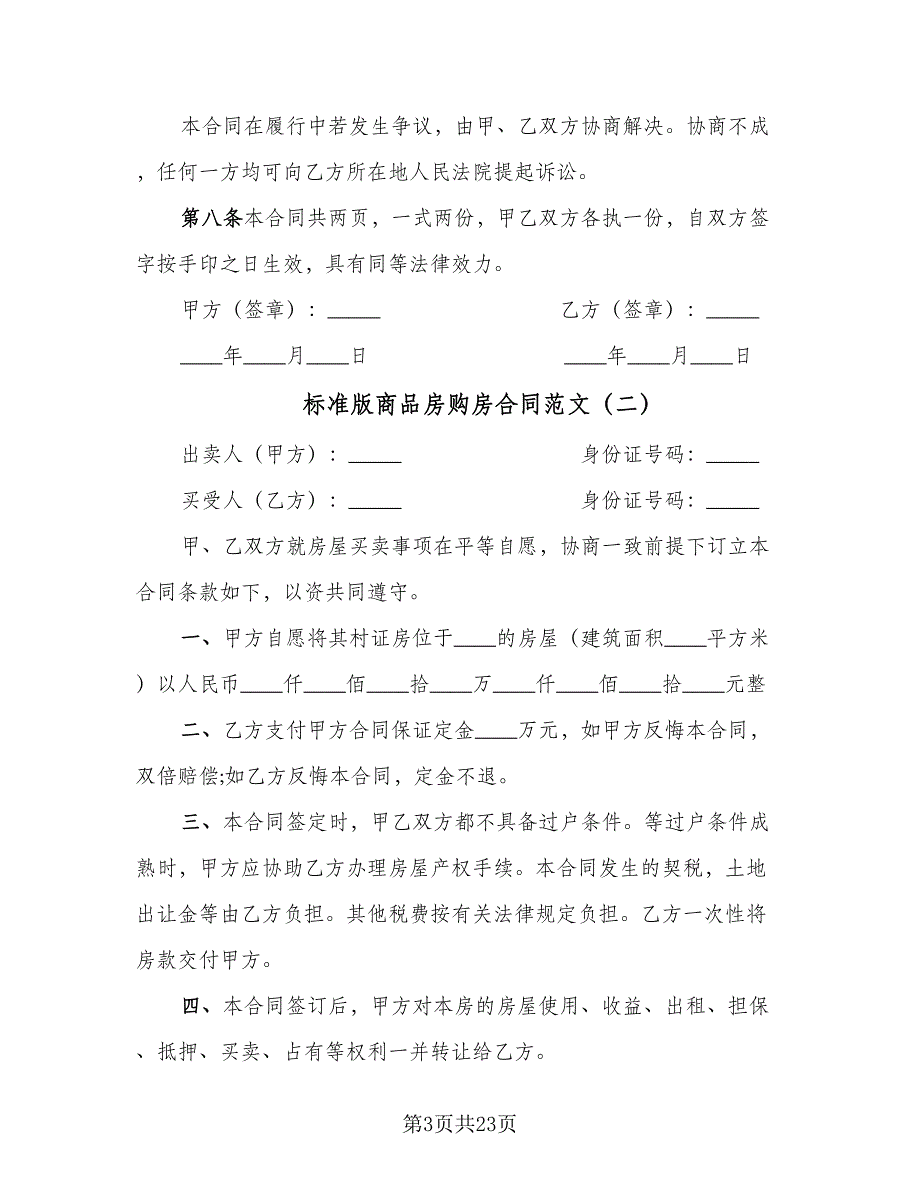 本合同在履行中若发生争议，由甲、乙双方协商解决。协商不成
，任何一方均可向乙方所在地人民法院提起诉讼。
第八条本合同共两页，一式两份，甲乙双方各执一份，自双方签
字按手印之日生效，具有同等法律效力。
甲方（签章）：_____ 乙方（签章）：_____
____年____月____日 ____年____月____日
标准版商品房购房合同范文（二）
出卖人（甲方）：_____ 身份证号码：_____
买受人（乙方）：_____ 身份证号码：_____
甲、乙双方就房屋买卖事项在平等自愿，协商一致前提下订立本
合同条款如下，以资共同遵守。
一、甲方自愿将其村证房位于____的房屋（建筑面积____平方米
）以人民币____仟____佰____拾____万____仟____佰____拾____元整
二、乙方支付甲方合同保证定金____万元，如甲方反悔本合同，
双倍赔偿;如乙方反悔本合同，定金不退。
三、本合同签定时，甲乙双方都不具备过户条件。等过户条件成
熟时，甲方应协助乙方办理房屋产权手续。本合同发生的契税，土地
出让金等由乙方负担。其他税费按有关法律规定负担。乙方一次性将
房款交付甲方。
四、本合同签订后，甲方对本房的房屋使用、收益、出租、担保
、抵押、买卖、占有等权利一并转让给乙方。
第3页共23页